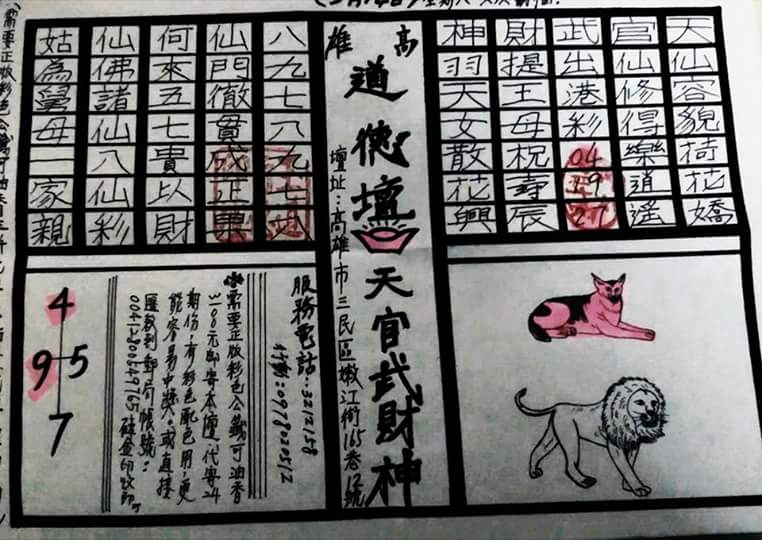 天仙容貌椅花嬌
官仙修得樂逍遙
武出港彩 04 19 27
財提王母祝壽辰
神羽天女散花興
高雄
道德壇 天官武財神
壇址:高雄市三民區嫩江街165巷12號
八九七八九七八
仙門徹貫成正果
何來五七貴以財
仙佛諸仙八仙彩
姑為舅母一家親
服務電話:3212158
行動:0978020512
需要正版彩色公籤可油香
3100元郵寄本壇代寄24
期份,有彩色配色用,更
能容易中獎。或直接
匯款到郵局帳號:
4
9 5
7